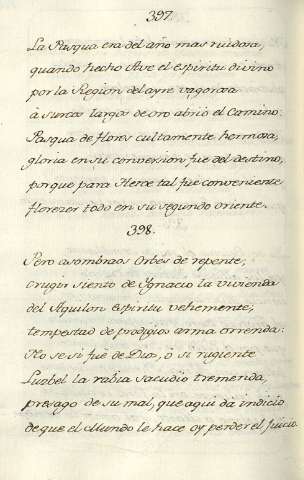 397.
La Pasqua era del año mas ruidosa,
quando hecho Ave el espiritu divino
por la Region del ayre vagorosa
à surcos largos de oro abriò el Camino:
Pasqua de flores cultamente hermosa,
gloria en su conversion fue del destino,
porque para Heroe tal fue conveniente
florezer todo en su segundo oriente.
398.
Pero asombraos Orbes de repente,
crugir siento de Ygnacio la vivienda
del Aquilon espiritu vehemente,
tempestad de prodigios arma orrenda:
No se si fuè de Dios, ò si rugiente
Luzbel la rabia sacudio tremenda,
presago de su mal, que aqui dà indicio
de que el Mundo le hace oy perder el Juicio.